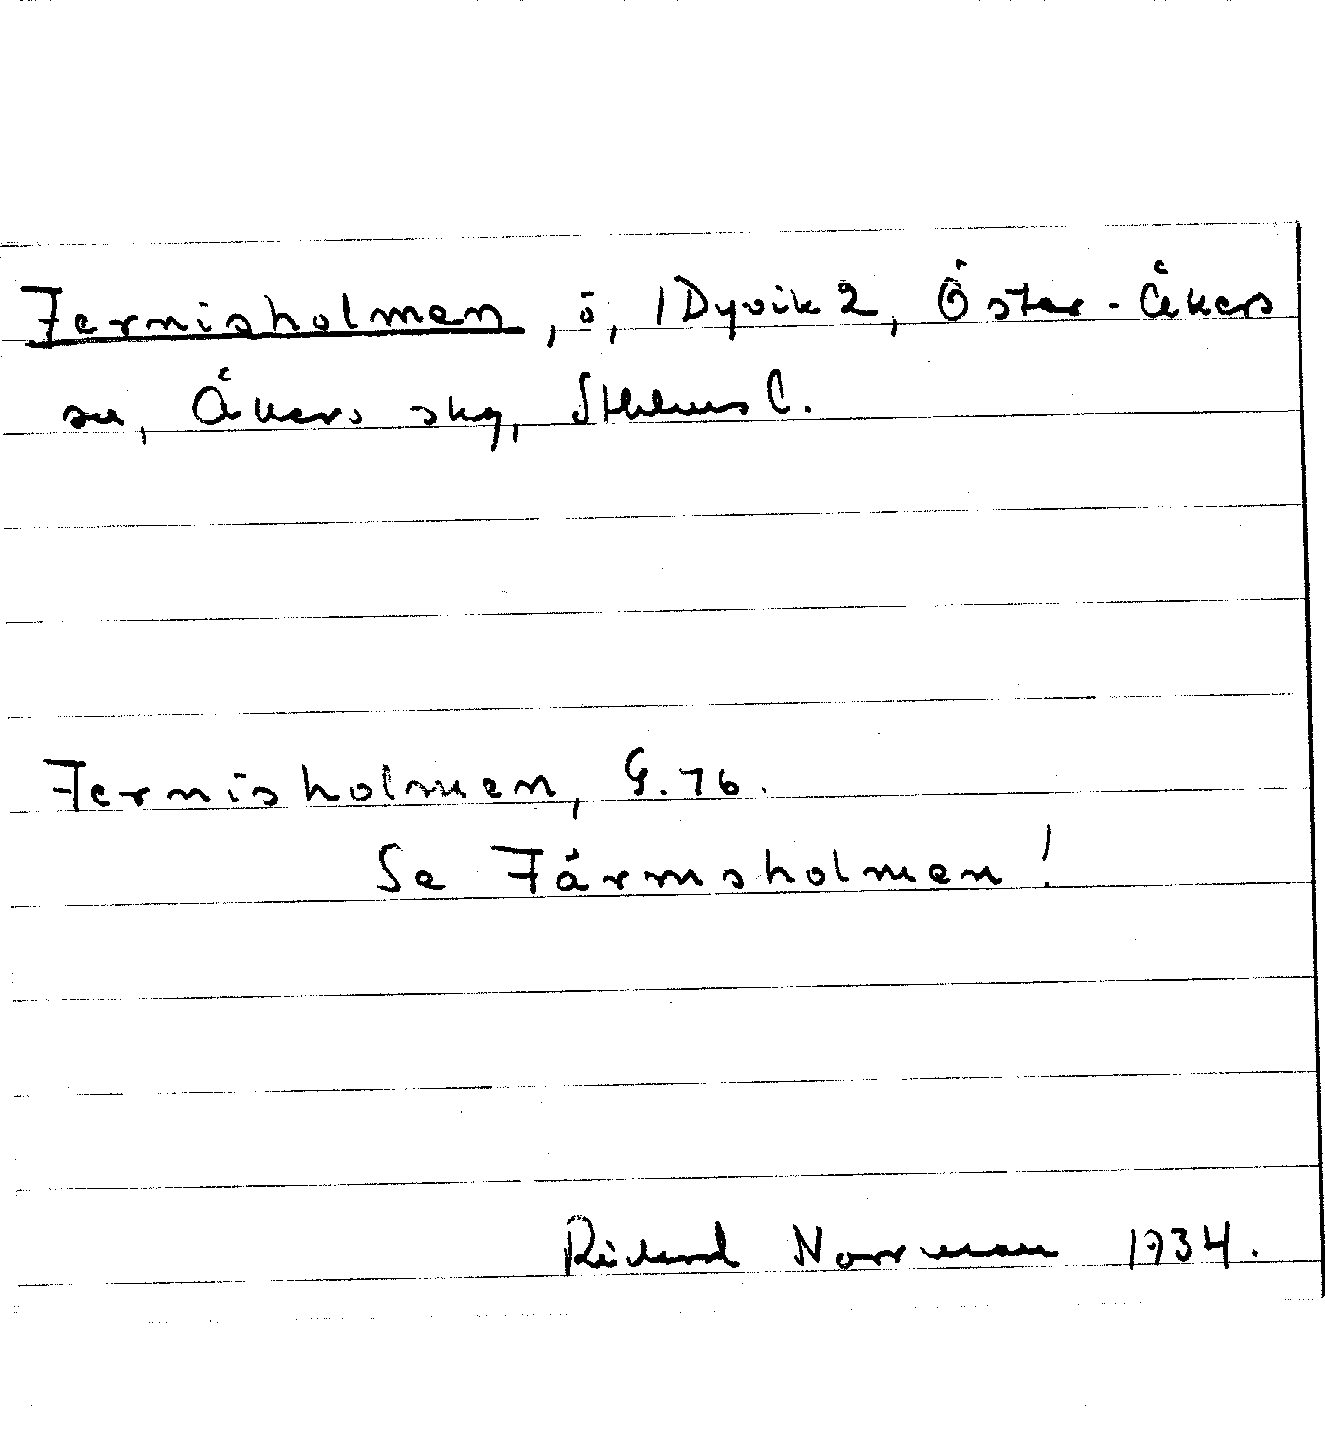 Fernisholmen, ö, 1 Dyvik 2, Öster-Åkers
sn, Åkers skg, Sthlms l.
Fernisholmen, G. 76.
Se Färmsholmen!
Rickard Norrman 1934.